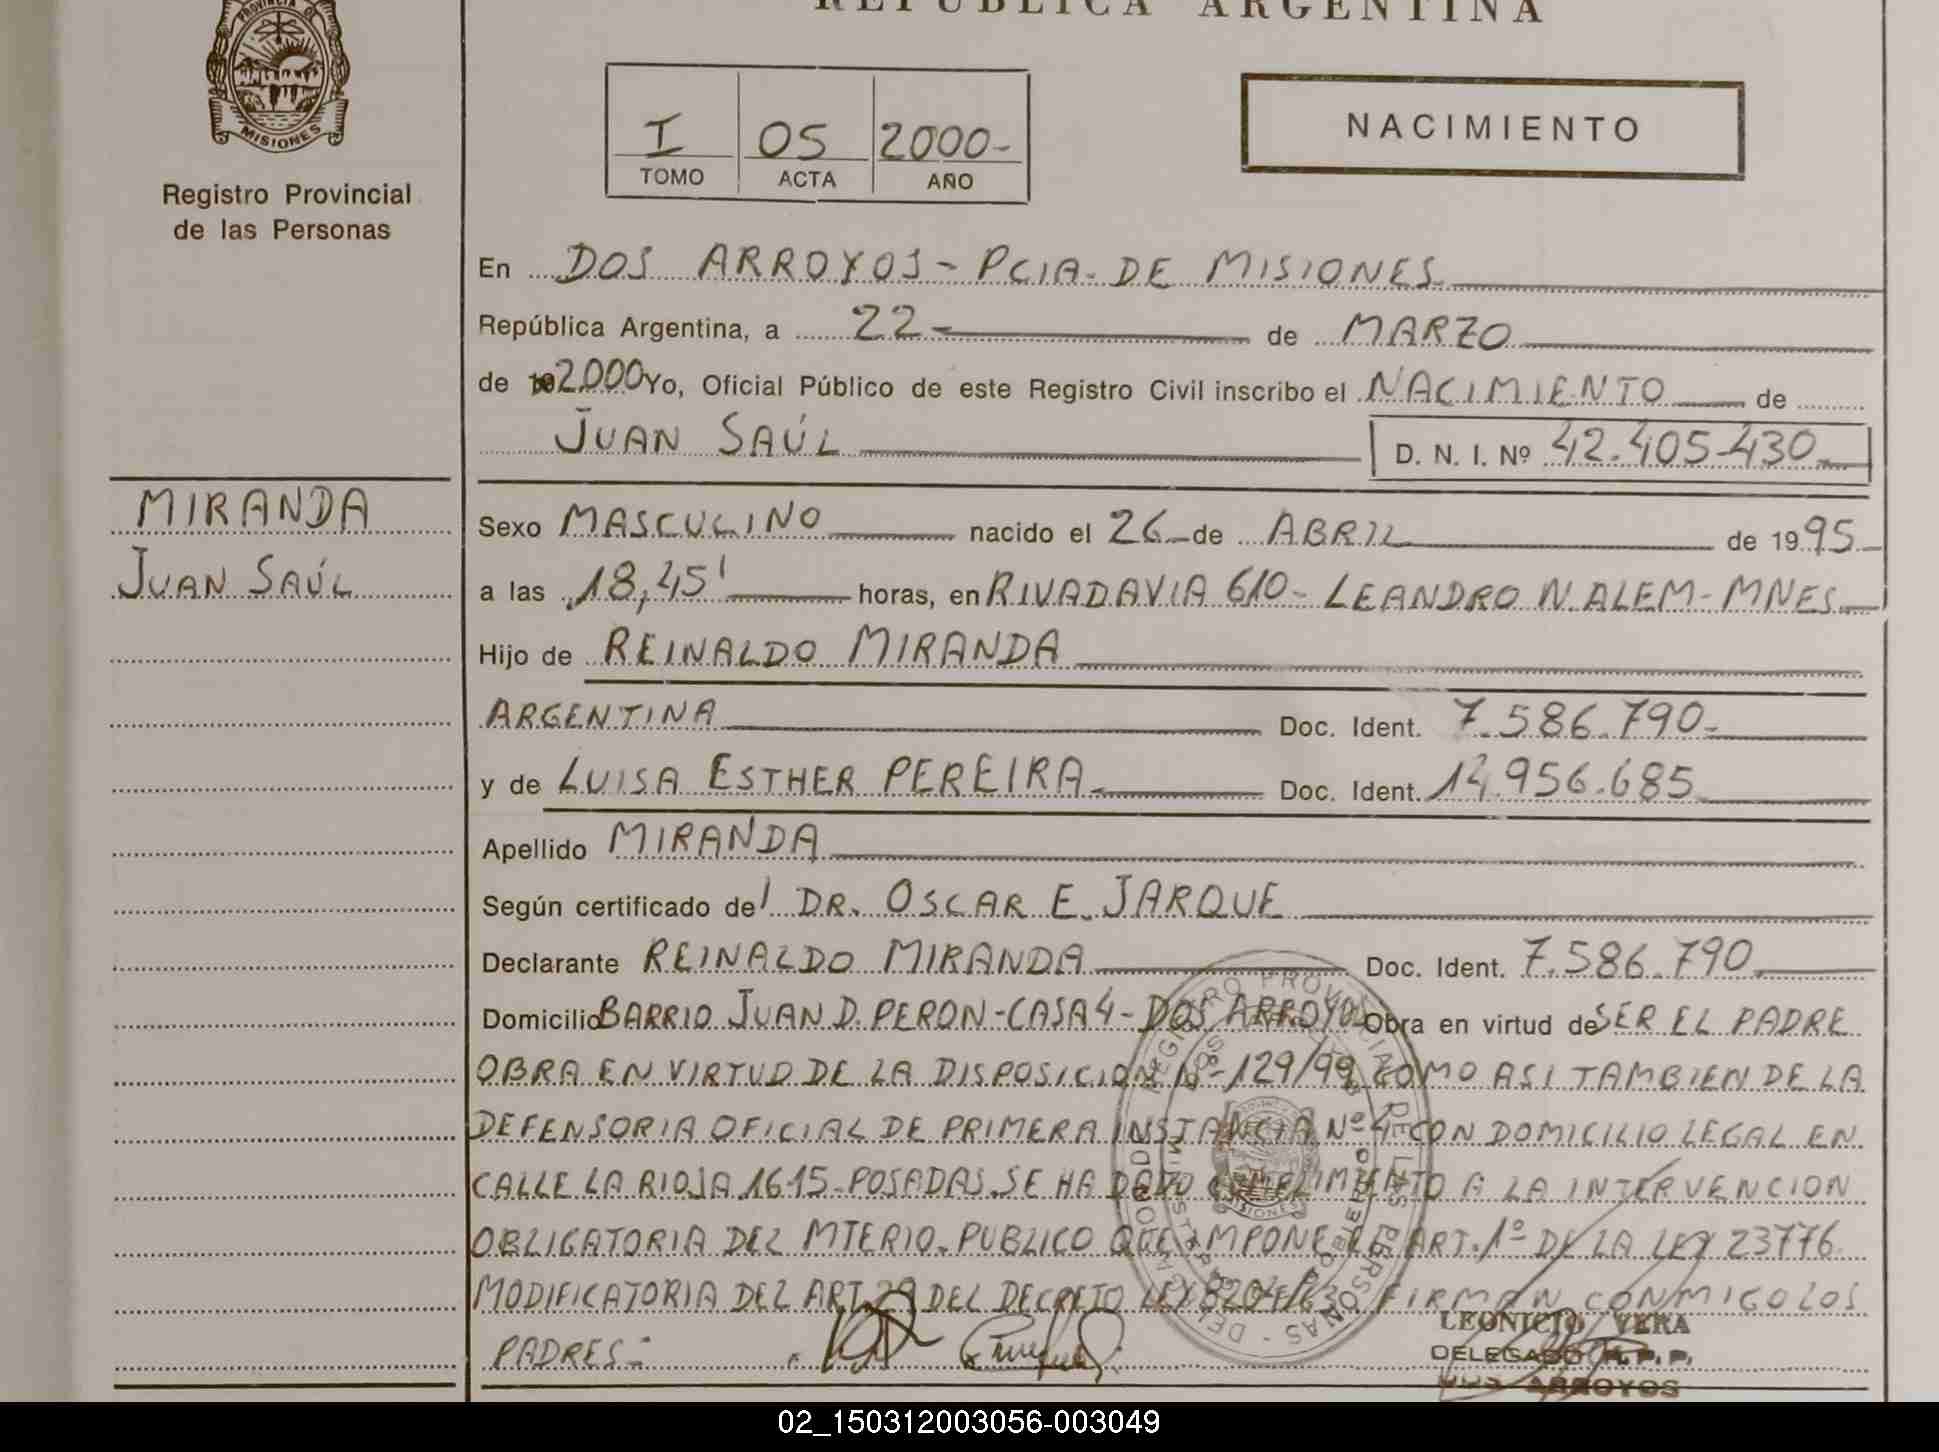 REPUBLICA ARGENTINA
PROVINCIA DE
MISIONES
Registro Provincial
de las Personas
I 05 2000-
TOMO ACTA AÑO
NACIMIENTO
En DOS ARROYOS - PCIA. DE MISIONES
República Argentina, a 22 de MARZO
de 19 2000 Yo, Oficial Público de este Registro Civil inscribo el NACIMIENTO de
JUAN SAÚL D. N. I. Nº 42.405.430
MIRANDA
JUAN SAÚL
Sexo MASCULINO nacido el 26 de ABRIL de 1995
a las 18,45' horas, en RIVADAVIA 610- LEANDRO N. ALEM- MNES
Hijo de REINALDO MIRANDA
ARGENTINA Doc. Ident. 7.586.790-
y de LUISA ESTHER PEREIRA Doc. Ident. 14.956.685
Apellido MIRANDA
Según certificado del DR. OSCAR E. JARQUE
Declarante REINALDO MIRANDA Doc. Ident. 7.586.790
Domicilio BARRIO JUAN D. PERON-CASA 4- DOS ARROYOS Obra en virtud de SER EL PADRE
OBRA EN VIRTUD DE LA DISPOSICION Nº 129/99 COMO ASI TAMBIEN DE LA
DEFENSORIA OFICIAL DE PRIMERA INSTANCIA Nº 4 CON DOMICILIO LEGAL EN
CALLE LA RIOJA 1615- POSADAS. SE HA DADO CUMPLIMIENTO A LA INTERVENCION
OBLIGATORIA DEL MTERIO. PUBLICO QUE IMPONE EL ART. 1º DE LA LEY 23776
MODIFICATORIA DEL ART. 29 DEL DECRETO LEY 8204/63 FIRMAN CONMIGO LOS
PADRES:
REGISTRO PROVINCIAL DE LAS PERSONAS - DELEGACION
MISIONES
LEONICIO VERA
DELEGADO R. P. P.
DOS ARROYOS
02_150312003056-003049